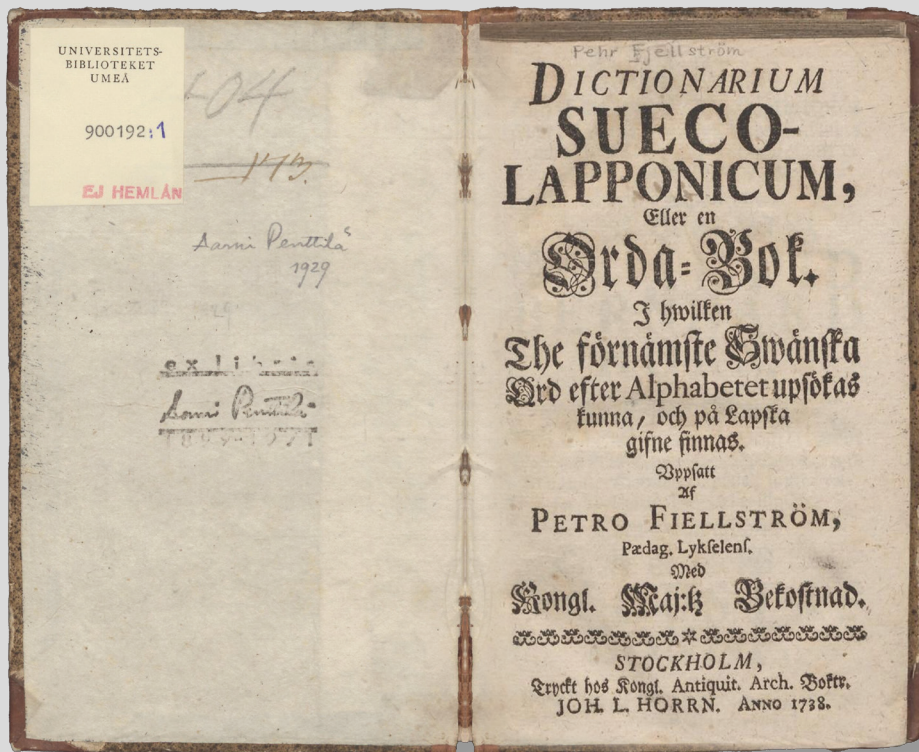 UNIVERSITETS-
BIBLIOTEKET
UMEÅ
900192:1
EJ HEMLÅN
404
173.
Aarni Penttilä
1929
ex libris
Aarni Penttilä
1899-1971
Pehr Fjellström
DICTIONARIUM
SUECO-
LAPPONICUM,
Eller en
Orda-Bok.
J hwilken
The förnämste Swänska
Ord efter Alphabetet upsökas
kunna, och på Lapska
gifne finnas.
Uppsatt
Af
PETRO FIELLSTRÖM,
Pædag. Lykselens.
Med
Kongl. Maj:tz Bekostnad.
STOCKHOLM,
Tryckt hos Kongl. Antiquit. Arch. Boktr.
JOH. L. HORRN. ANNO 1738.